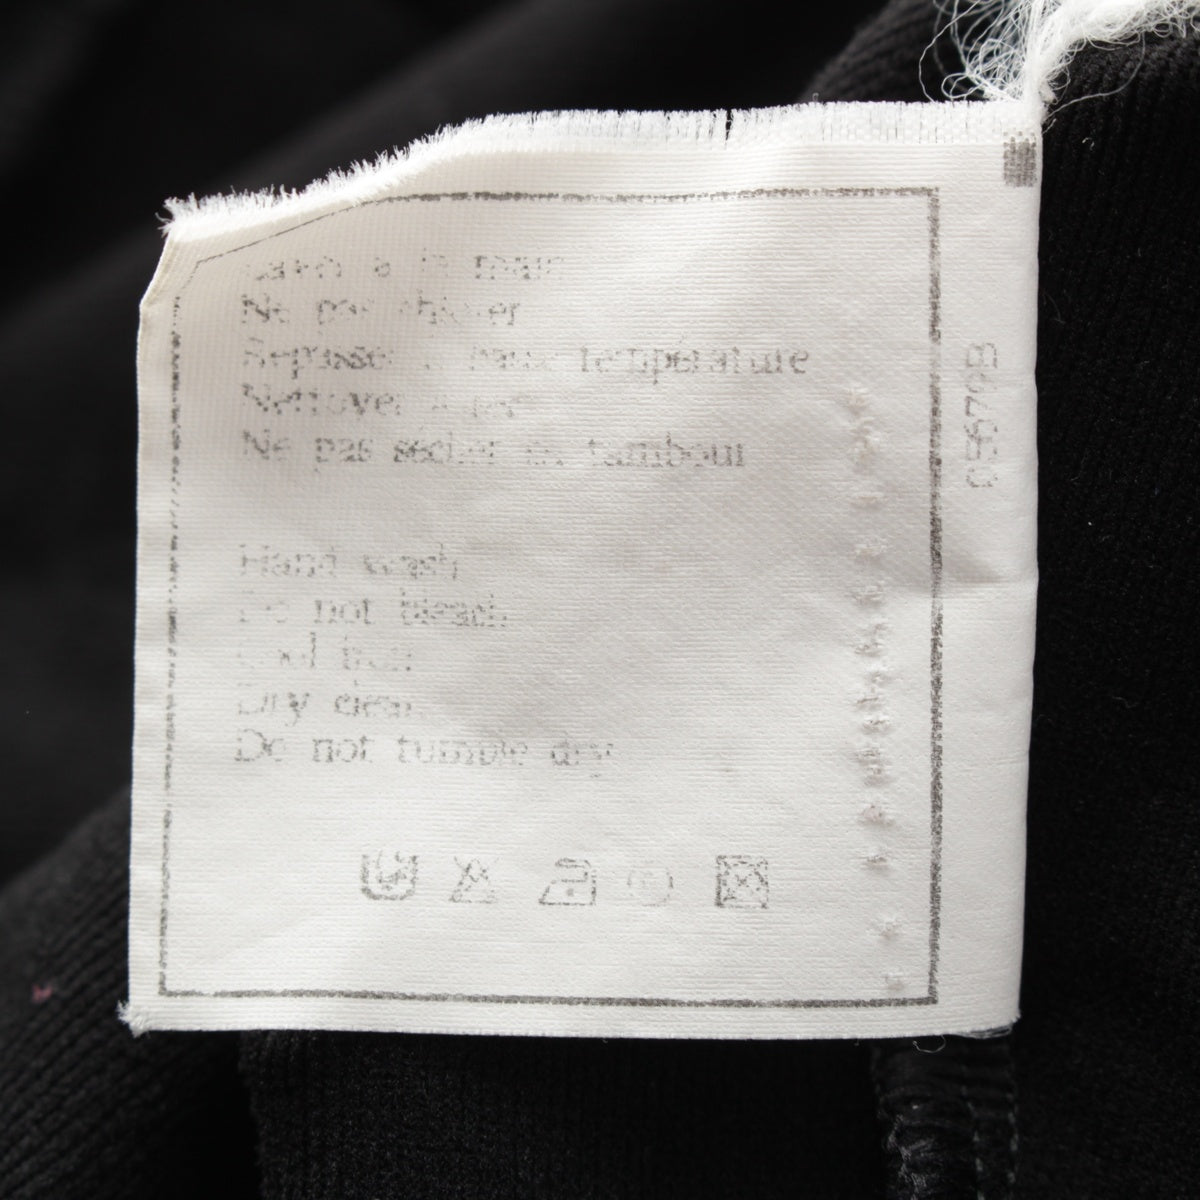 Laver à la main
Ne pas chlorer
Repasser à basse température
Nettoyer à sec
Ne pas sécher en tambour
Hand wash
Do not bleach
Cool iron
Dry clean
Do not tumble dry